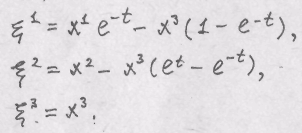 ξ¹ = x¹ e⁻ᵗ − x³ (1 − e⁻ᵗ),
ξ² = x² − x³ (eᵗ − e⁻ᵗ),
ξ³ = x³.